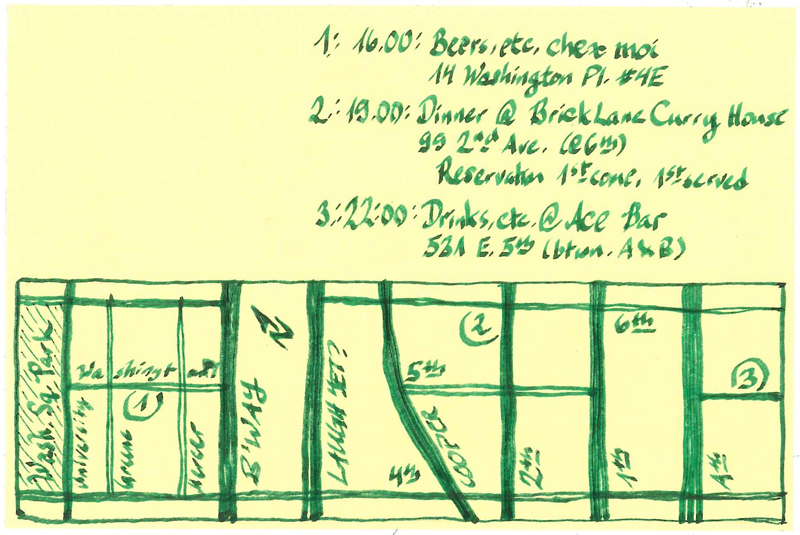 1: 16.00: Beers, etc, chez moi
14 Washington Pl. #4E
2: 19.00: Dinner @ Brick Lane Curry House
99 2nd Ave. (@6th)
Reservation 1st come, 1st served
3: 22:00: Drinks, etc. @ Ace Bar
531 E. 5th (btwn. A & B)
Wash. Sq. Park
Washingt
University
Greene
Mercer
1
B'WAY
N
LAUGH YET?
4th
COOPER
5th
2
2nd
6th
1st
A
3